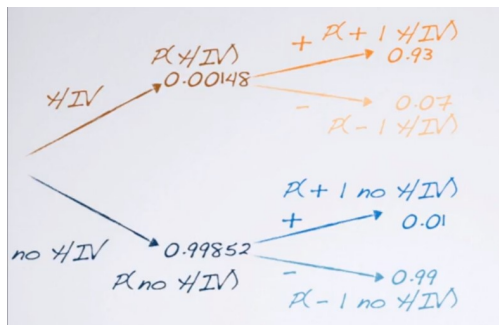 P(HIV)
0.00148
HIV
+ P(+ | HIV)
0.93
- 0.07
P(- | HIV)
no HIV
0.99852
P(no HIV)
P(+ | no HIV)
+ 0.01
- 0.99
P(- | no HIV)